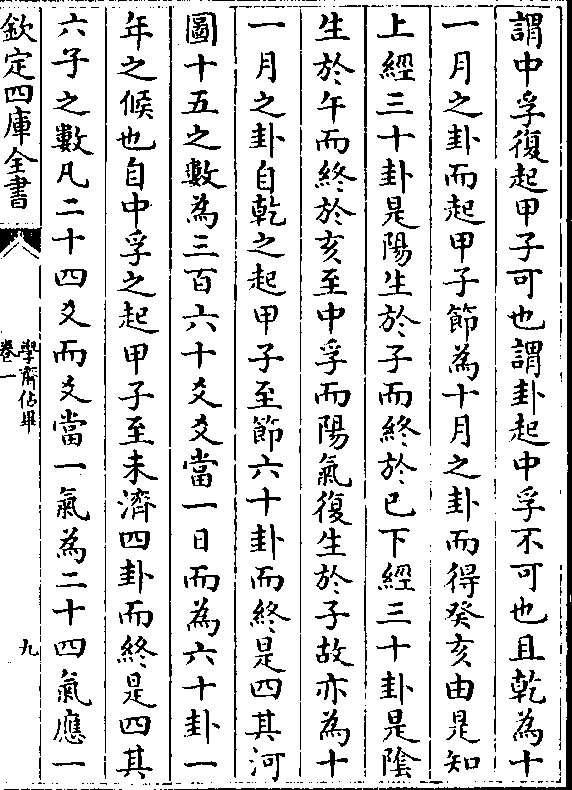 謂中孚復起甲子可也謂卦起中孚不可也且乾為十
一月之卦而起甲子節為十月之卦而得癸亥由是知
上經三十卦是陽生於子而終於巳下經三十卦是陰
生於午而終於亥至中孚而陽氣復生於子故亦為十
一月之卦自乾之起甲子至節六十卦而終是四其河
圖十五之數為三百六十爻爻當一日而為六十卦一
年之候也自中孚之起甲子至未濟四卦而終是四其
六子之數凡二十四爻而爻當一氣為二十四氣應一
欽定四庫全書
學齋佔畢
卷一
九